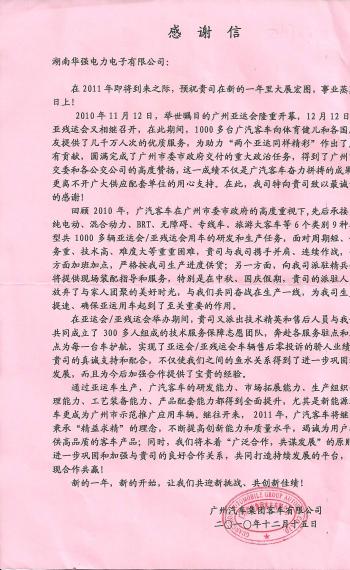 感 谢 信
湖南华强电力电子有限公司：
在 2011 年即将到来之际，预祝贵司在新的一年里大展宏图，事业蒸
日上！
2010 年 11 月 12 日，举世瞩目的广州亚运会隆重开幕，12 月 12 日
亚残运会又相继召开，在此期间，1000 多台广汽客车向体育健儿和各国
友提供了几千万人次的优质服务，为助力“两个亚运同样精彩”作出了
有贡献，圆满完成了广州市委市政府交付的重大政治任务，得到了广州
交委和各公交公司的高度赞扬，这一成绩不仅是广汽客车奋力拼搏的成
更离不开广大供应配套单位的用心支持。在此，我司特向贵司致以最诚
的感谢！
回顾 2010 年，广汽客车在广州市委市政府的高度重视下，先后承接
纯电动、混合动力、BRT、无障碍、专线车、旅游大客车等 6 个类别 9 种
型共 1000 多辆亚运会/亚残运会用车的研发和生产任务，面对周期短、
务重、技术高、难度大等重重困难，贵司与我司携手并肩、连续作战，
方面加班加点，严格按我司生产进度供货；另一方面，向我司派驻精兵
将提供现场装配指导和服务，特别是在中秋、国庆假期，贵司的派驻人
放弃了与家人团聚的美好时光，与我们共同奋战在生产一线，为我司生
提速、确保亚运用车起到了至关重要的作用。
在亚运会/亚残运会举办期间，贵司又派出技术精英和售后人员与我
共同成立了 300 多人组成的技术服务保障志愿团队，奔赴各服务驻点和
点为每一台车护航，实现了亚运会/亚残运会车辆售后零投诉的骄人业绩
贵司的真诚支持和配合，不仅使我们之间的鱼水关系得到了进一步巩固
发展，而且为今后加强合作提供了宝贵的经验。
通过亚运车生产，广汽客车的研发能力、市场拓展能力、生产组织
理能力、工艺装备能力、产品配套能力都得到全面提升，尤其是新能源
车更成为广州市示范推广应用车辆。继往开来，2011 年，广汽客车将继
秉承“精益求精”的理念，不断提高创新能力和质量水平，竭诚为用户
供高品质的客车产品；同时，我们将本着“广泛合作，共谋发展”的原
进一步巩固和加强与贵司的良好合作关系，共同打造持续发展的平台，
现合作共赢！
新的一年，新的开始，让我们共迎新挑战、共创新佳绩！
广州汽车集团客车有限公司
二〇一〇年十二月十五日